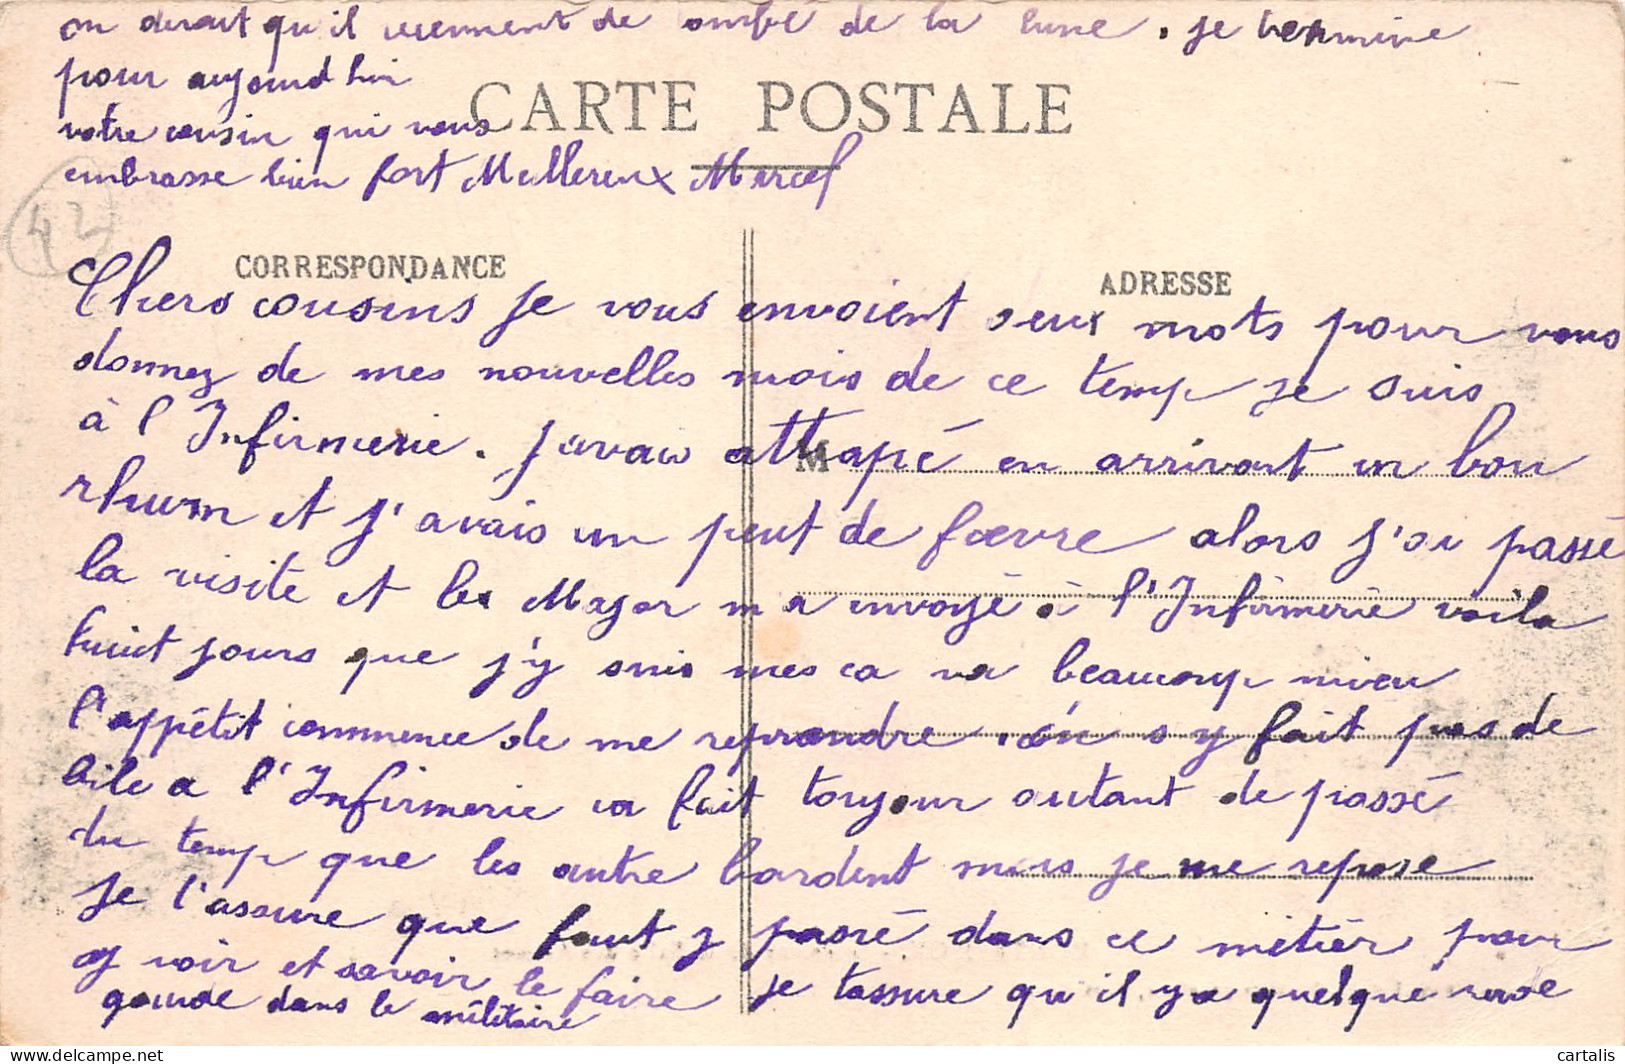 on dirait qu'il viennent de tombé de la lune. je termine
pour aujourd hui
CARTE POSTALE
votre cousin qui vous
embrasse bien fort Marcel
42
CORRESPONDANCE
ADRESSE
Chers cousins je vous envoient deux mots pour vous
donnez de mes nouvelles mois de ce temp je suis
à l'Infirmerie. j'avais attrapé en arrivant un bon
M
rhum et j'avais un peut de fœvre alors j'ai passé
la visite et le Major m a envoyé à l'Infirmerie voila
huict jours que j'y suis mes ca va beaucoup mieu
l'appétit commence de me reprendre. on s y fait pas de
bile a l'Infirmerie ca fait toujour autant de passé
du temp que les autre bardent mais je me repose
je t'assure que faut y passé dans ce métier pour
y voir et savoir le faire je tassure qu'il y a quelque
dans le militaire
cartalis
www.delcampe.net